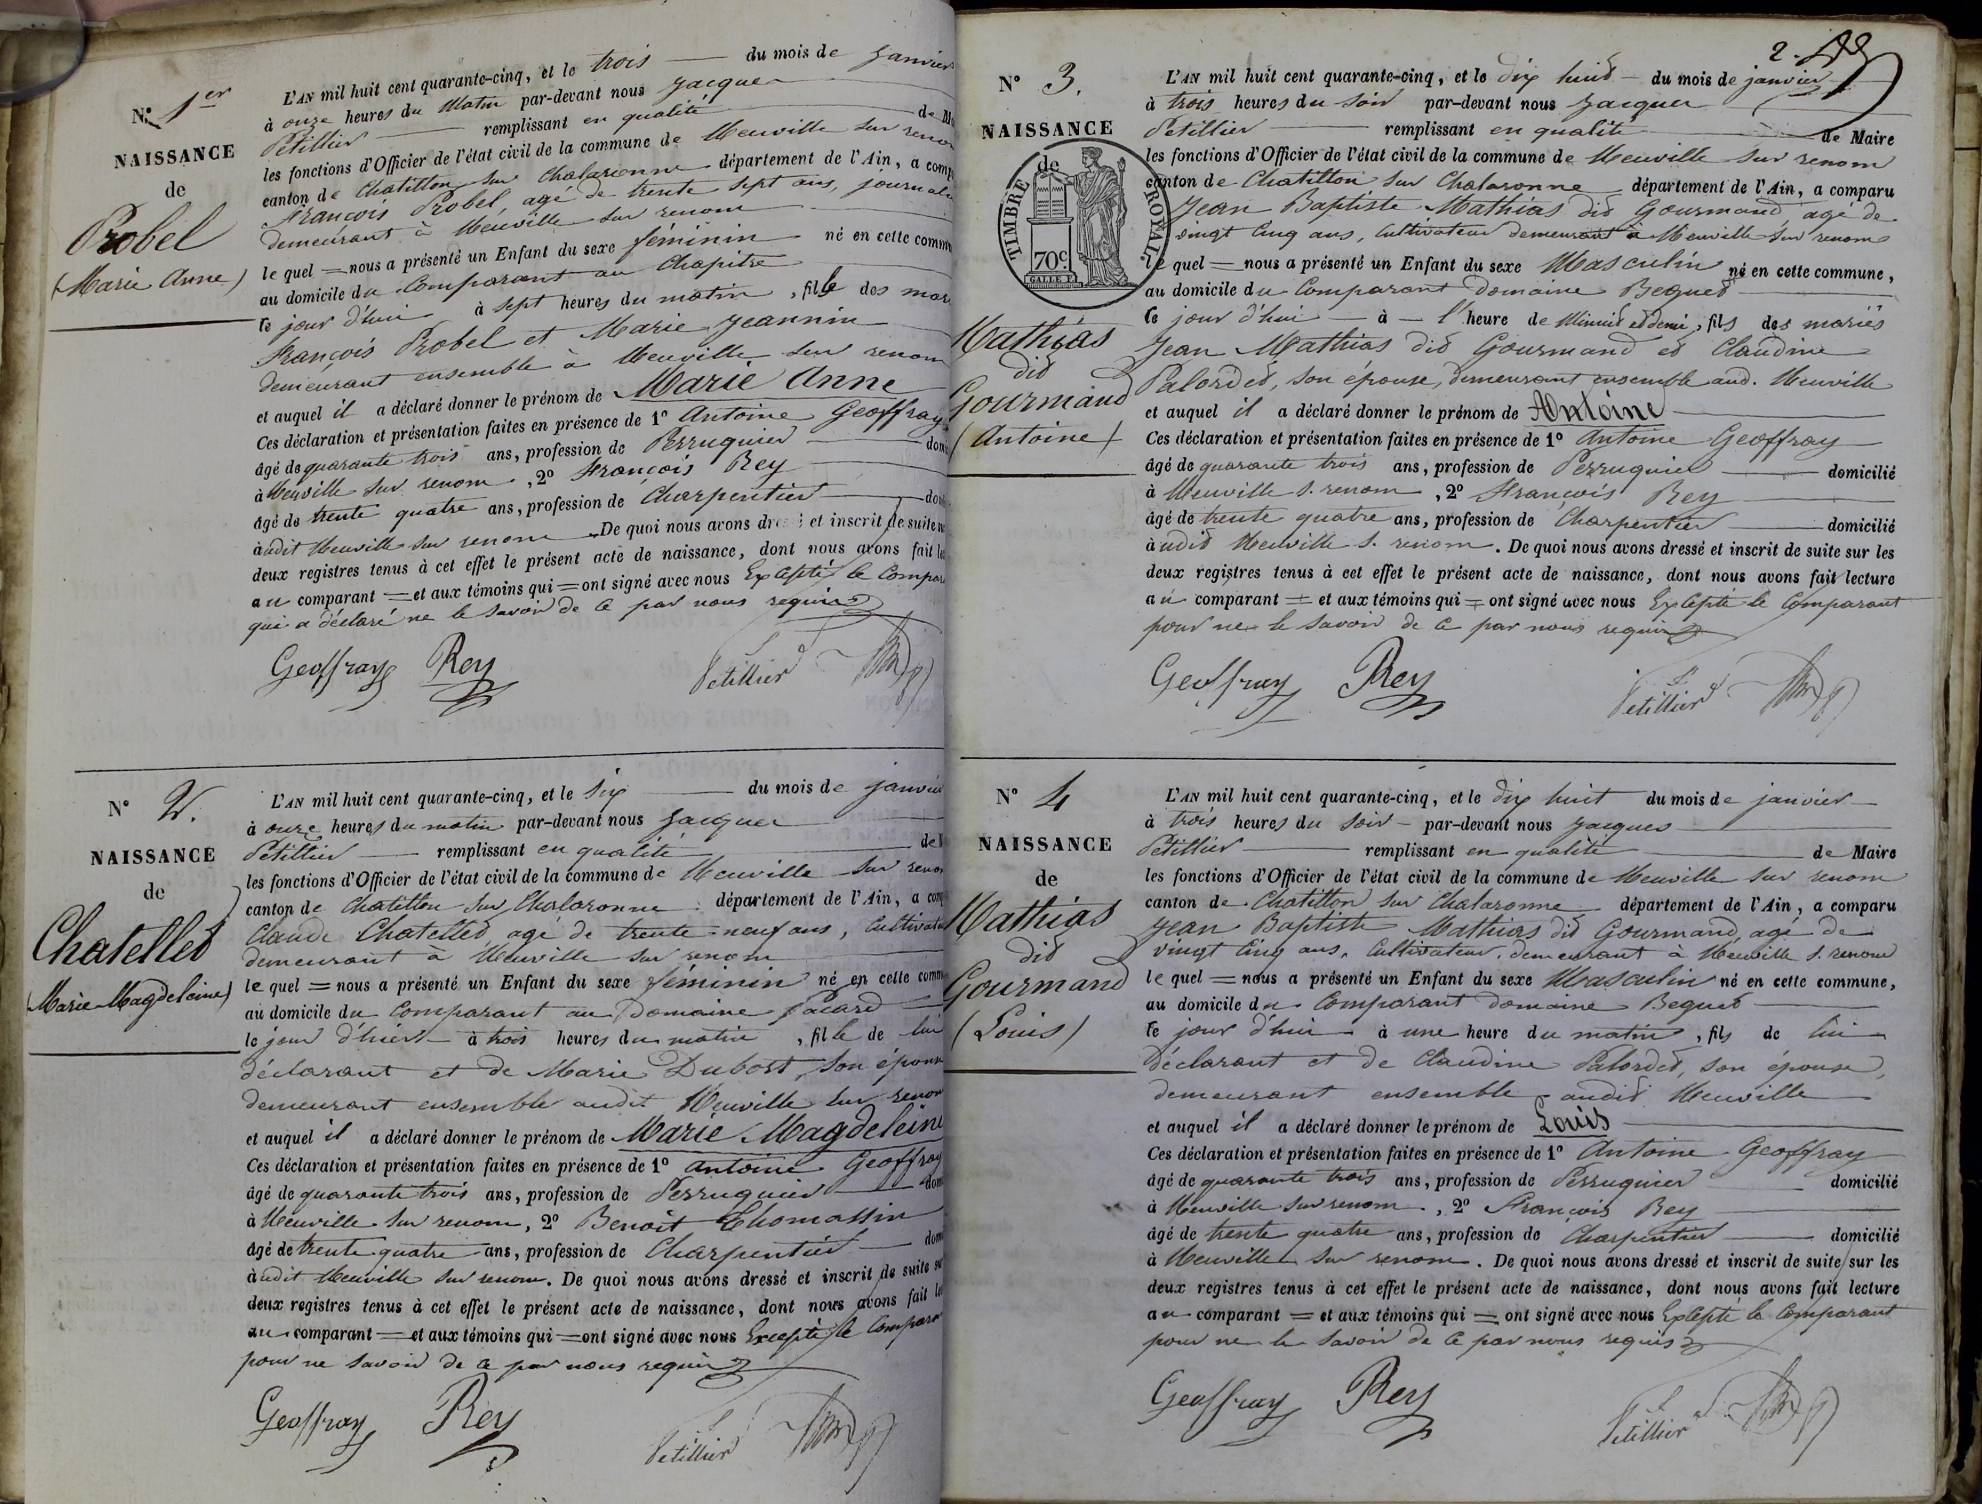 N.° 1er
NAISSANCE
de
Probel
(Marie Anne)
L'AN mil huit cent quarante-cinq, et le trois du mois de janvier
à onze heures du Matin par-devant nous Jacques
Petillier remplissant en qualité de M
les fonctions d'Officier de l'état civil de la commune de Neuville sur renom
canton de Chatillon sur Chalaronne département de l'Ain, a comp
François Probel, agé de trente sept ans, journali
demeurant à Neuville sur renom
le quel = nous a présenté un Enfant du sexe féminin né en cette commu
au domicile du Comparant au Chapitre
le jour d'hui à sept heures du matin, fille des mar
François Probel et Marie Jeannin
demeurant ensemble à Neuville sur renom
et auquel il a déclaré donner le prénom de Marie Anne
Ces déclaration et présentation faites en présence de 1° Antoine Geoffray
âgé de quarante trois ans, profession de Perruquier domi
à Neuville sur renom, 2° François Rey
âgé de trente quatre ans, profession de Charpentier domi
à udit Neuville sur renom. De quoi nous avons dressé et inscrit de suite
deux registres tenus à cet effet le présent acte de naissance, dont nous avons fait le
au comparant = et aux témoins qui = ont signé avec nous Excepté le Compar
qui a déclaré ne le savoir de ce par nous requis
Geoffray Rey Petillier
N° 2.
NAISSANCE
de
Chatelled
(Marie Magdeleine)
L'AN mil huit cent quarante-cinq, et le six du mois de janvier
à onze heures du matin par-devant nous Jacques
Petillier remplissant en qualité de M
les fonctions d'Officier de l'état civil de la commune de Neuville sur renom
canton de Chatillon sur Chalaronne département de l'Ain, a comp
Claude Chatelled, agé de trente neuf ans, Cultivate
demeurant à Neuville sur renom
le quel = nous a présenté un Enfant du sexe féminin né en cette comm
au domicile du Comparant au Domaine Pacard
le jour d'hier à trois heures du matin, fille de lui
déclarant et de Marie Dubost, son épouse
demeurant ensemble audit Neuville sur renom
et auquel il a déclaré donner le prénom de Marie Magdeleine
Ces déclaration et présentation faites en présence de 1° Antoine Geoffray
âgé de quarante trois ans, profession de Perruquier dom
à Neuville sur renom, 2° Benoit Thomassin
âgé de trente quatre ans, profession de Charpentier dom
à udit Neuville sur renom. De quoi nous avons dressé et inscrit de suite su
deux registres tenus à cet effet le présent acte de naissance, dont nous avons fait le
au comparant = et aux témoins qui = ont signé avec nous Excepté le Comparan
pour ne savoir de ce par nous requis
Geoffray Rey Petillier
2.
N° 3.
NAISSANCE
de
TIMBRE ROYAL
70c.
Mathias
did
Gourmand
(Antoine)
L'AN mil huit cent quarante-cinq, et le dix huid du mois de janvier
à trois heures du soir par-devant nous Jacques
Petillier remplissant en qualité de Maire
les fonctions d'Officier de l'état civil de la commune de Neuville sur renom
canton de Chatillon sur Chalaronne département de l'Ain, a comparu
Jean Baptiste Mathias did Gourmand, agé de
vingt Cinq ans, Cultivateur demeurant à Neuville sur renom
le quel = nous a présenté un Enfant du sexe Masculin né en cette commune,
au domicile du Comparant Domaine Bequed
le jour d'hui à l'heure de Minuit et demi, fils des mariés
Jean Mathias did Gourmand ed Claudine
Palorded, son épouse, demeurant ensemble aud. Neuville
et auquel il a déclaré donner le prénom de Antoine
Ces déclaration et présentation faites en présence de 1° Antoine Geoffray
âgé de quarante trois ans, profession de Perruquier domicilié
à Neuville s. renom, 2° François Rey
âgé de trente quatre ans, profession de Charpentier domicilié
à udid Neuville s. renom. De quoi nous avons dressé et inscrit de suite sur les
deux registres tenus à cet effet le présent acte de naissance, dont nous avons fait lecture
au comparant = et aux témoins qui = ont signé avec nous Excepté le Comparant
pour ne le savoir de ce par nous requis
Geoffray Rey Petillier
N° 4
NAISSANCE
de
Mathias
did
Gourmand
(Louis)
L'AN mil huit cent quarante-cinq, et le dix huit du mois de janvier
à trois heures du soir par-devant nous Jacques
Petillier remplissant en qualité de Maire
les fonctions d'Officier de l'état civil de la commune de Neuville sur renom
canton de Chatillon sur Chalaronne département de l'Ain, a comparu
Jean Baptiste Mathias did Gourmand, agé de
vingt Cinq ans, Cultivateur, demeurant à Neuville s. renom
le quel = nous a présenté un Enfant du sexe Masculin né en cette commune,
au domicile du Comparant domaine Bequed
le jour d'hui à une heure du matin, fils de lui
déclarant et de Claudine Palorded, son épouse,
demeurant ensemble audid Neuville
et auquel il a déclaré donner le prénom de Louis
Ces déclaration et présentation faites en présence de 1° Antoine Geoffray
âgé de quarante trois ans, profession de Perruquier domicilié
à Neuville sur renom, 2° François Rey
âgé de trente quatre ans, profession de Charpentier domicilié
à Neuville sur renom. De quoi nous avons dressé et inscrit de suite sur les
deux registres tenus à cet effet le présent acte de naissance, dont nous avons fait lecture
au comparant = et aux témoins qui = ont signé avec nous Excepté le Comparant
pour ne le savoir de ce par nous requis
Geoffray Rey Petillier